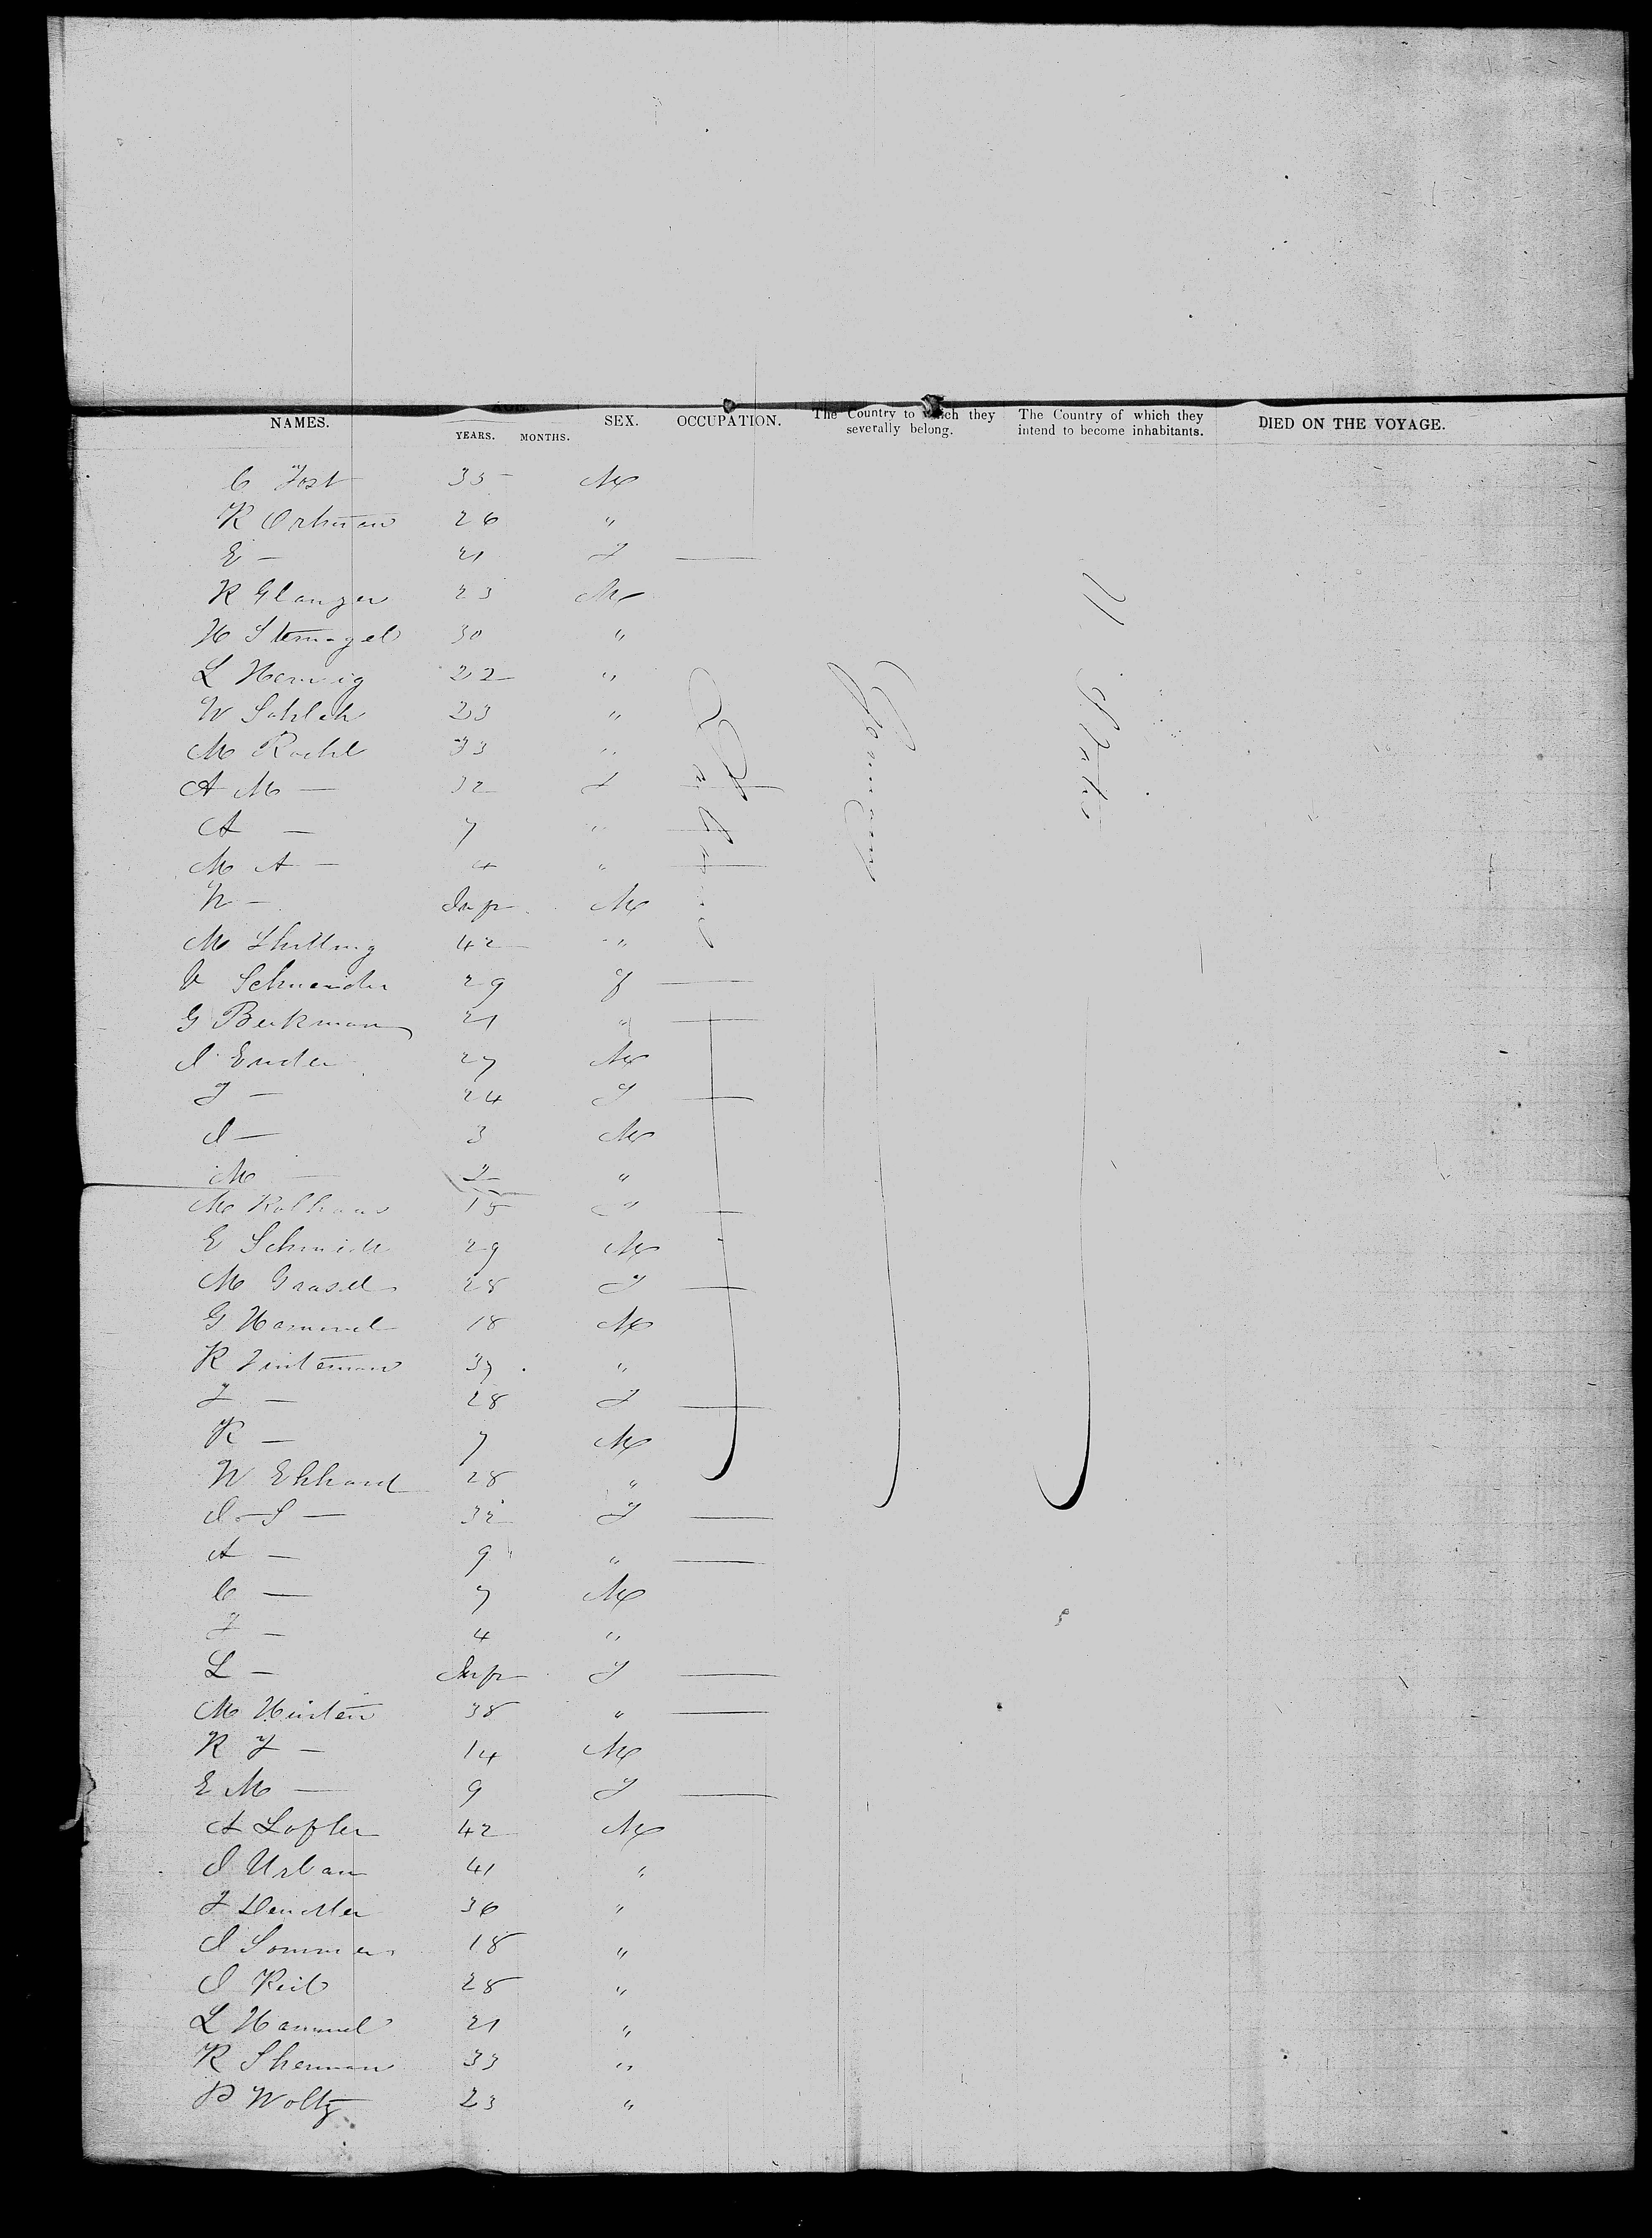 AGE.
NAMES. YEARS. MONTHS. SEX. OCCUPATION. The Country to which they severally belong. The Country of which they intend to become inhabitants. DIED ON THE VOYAGE.
C Jost 35 M
R Ortman 26 "
E — 21 F —
R Glanzer 23 M
H Sternagel 30 "
L Hennig 22 "
W 23 "
M Roehl 33 "
A M — 32 F —
A — 7 " —
M A — 4 " —
N — Inf M
M 42 "
Schneider 29 F —
G Beekman 21 " —
J Ender 27 M
F — 24 F —
J — 3 M
M — 2 "
M Kolhaas 15 " —
E Schmidt 29 M
M 28 F —
G Hammel 18 M
R 37 "
F — 28 F —
R — 7 M
W Ekhard 28 "
J S — 32 F —
A — 9 " —
C — 7 M
F — 4 "
L — Inf F —
M 38 " —
R F — 14 M
E M — 9 F —
A Lofler 42 M
J Urban 41 "
F 36 "
J Sommer 18 "
J Keil 28 "
L Hammel 21 "
R Sherman 33 "
P Woltz 23 "
Germany
U. States